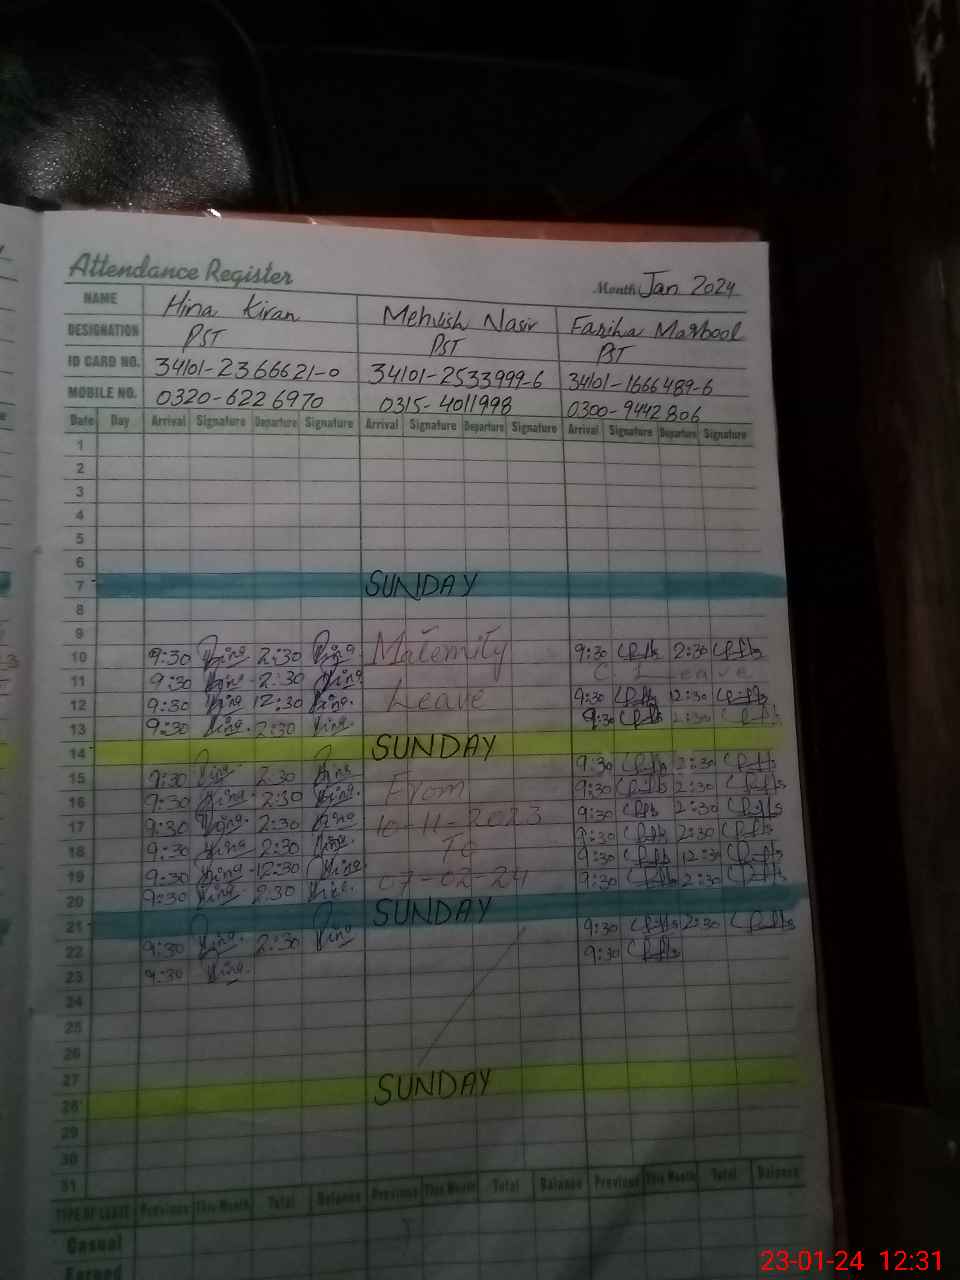 Attendance Register
Month Jan 2024
NAME Hina Kiran Mehvish Nasir Fariha Maqbool
DESIGNATION PST PST PST
ID CARD NO. 34101-2366621-0 34101-2533999-6 34101-1666489-6
MOBILE NO. 0320-6226970 0315-4011998 0300-9442806
Date Day Arrival Signature Departure Signature Arrival Signature Departure Signature Arrival Signature Departure Signature
1
2
3
4
5
6
7 SUNDAY
8
9
10 9:30 2:30 Maternity 9:30 2:30
11 9:30 2:30 C. Leave
12 9:30 12:30 Leave 9:30 12:30
13 9:30 2:30 9:30 2:30
14 SUNDAY
15 9:30 2:30 9:30 2:30
16 9:30 2:30 From 9:30 2:30
17 9:30 2:30 10-11-2023 9:30 2:30
18 9:30 2:30 To 9:30 2:30
19 9:30 12:30 9:30 12:30
20 9:30 2:30 07-02-24 9:30 2:30
21 SUNDAY
22 9:30 2:30 9:30 2:30
23 9:30 9:30
24
25
26
27
28 SUNDAY
29
30
31
TYPE OF LEAVE Previous This Month Total Balance Previous This Month Total Balance Previous This Month Total Balance
Casual
Earned
23-01-24 12:31